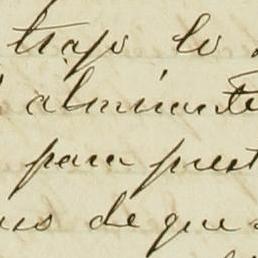 trajo lo
almirante
para prest
de que